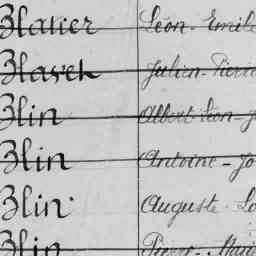 Blatier Léon-Emile
Blavet Julien-Pierre
Blin Albert-Léon-J
Blin Antoine-Jo
Blin Auguste-Lo
Blin Pierre-Marie